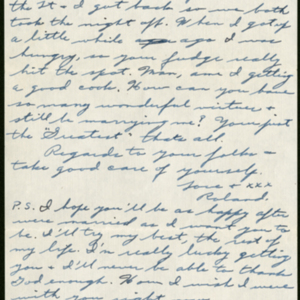 the St - I got back so we both
took the night off. When I got up
a little while ago I was
hungry, so your fudge really
hit the spot. Mom, am I getting
a good cook. How can you have
so many wonderful virtues &
still be marrying me? Your just
the "Greatest" thats all.
Regards to your folks &
take good care of yourself.
Love & xxx
Roland.
P.S. I hope you'll be as happy after
were married as I want you to
be. I'll try my best the rest of
my life. I'm really lucky getting
you & I'll never be able to thank
God enough. How I wish I were
with you right now